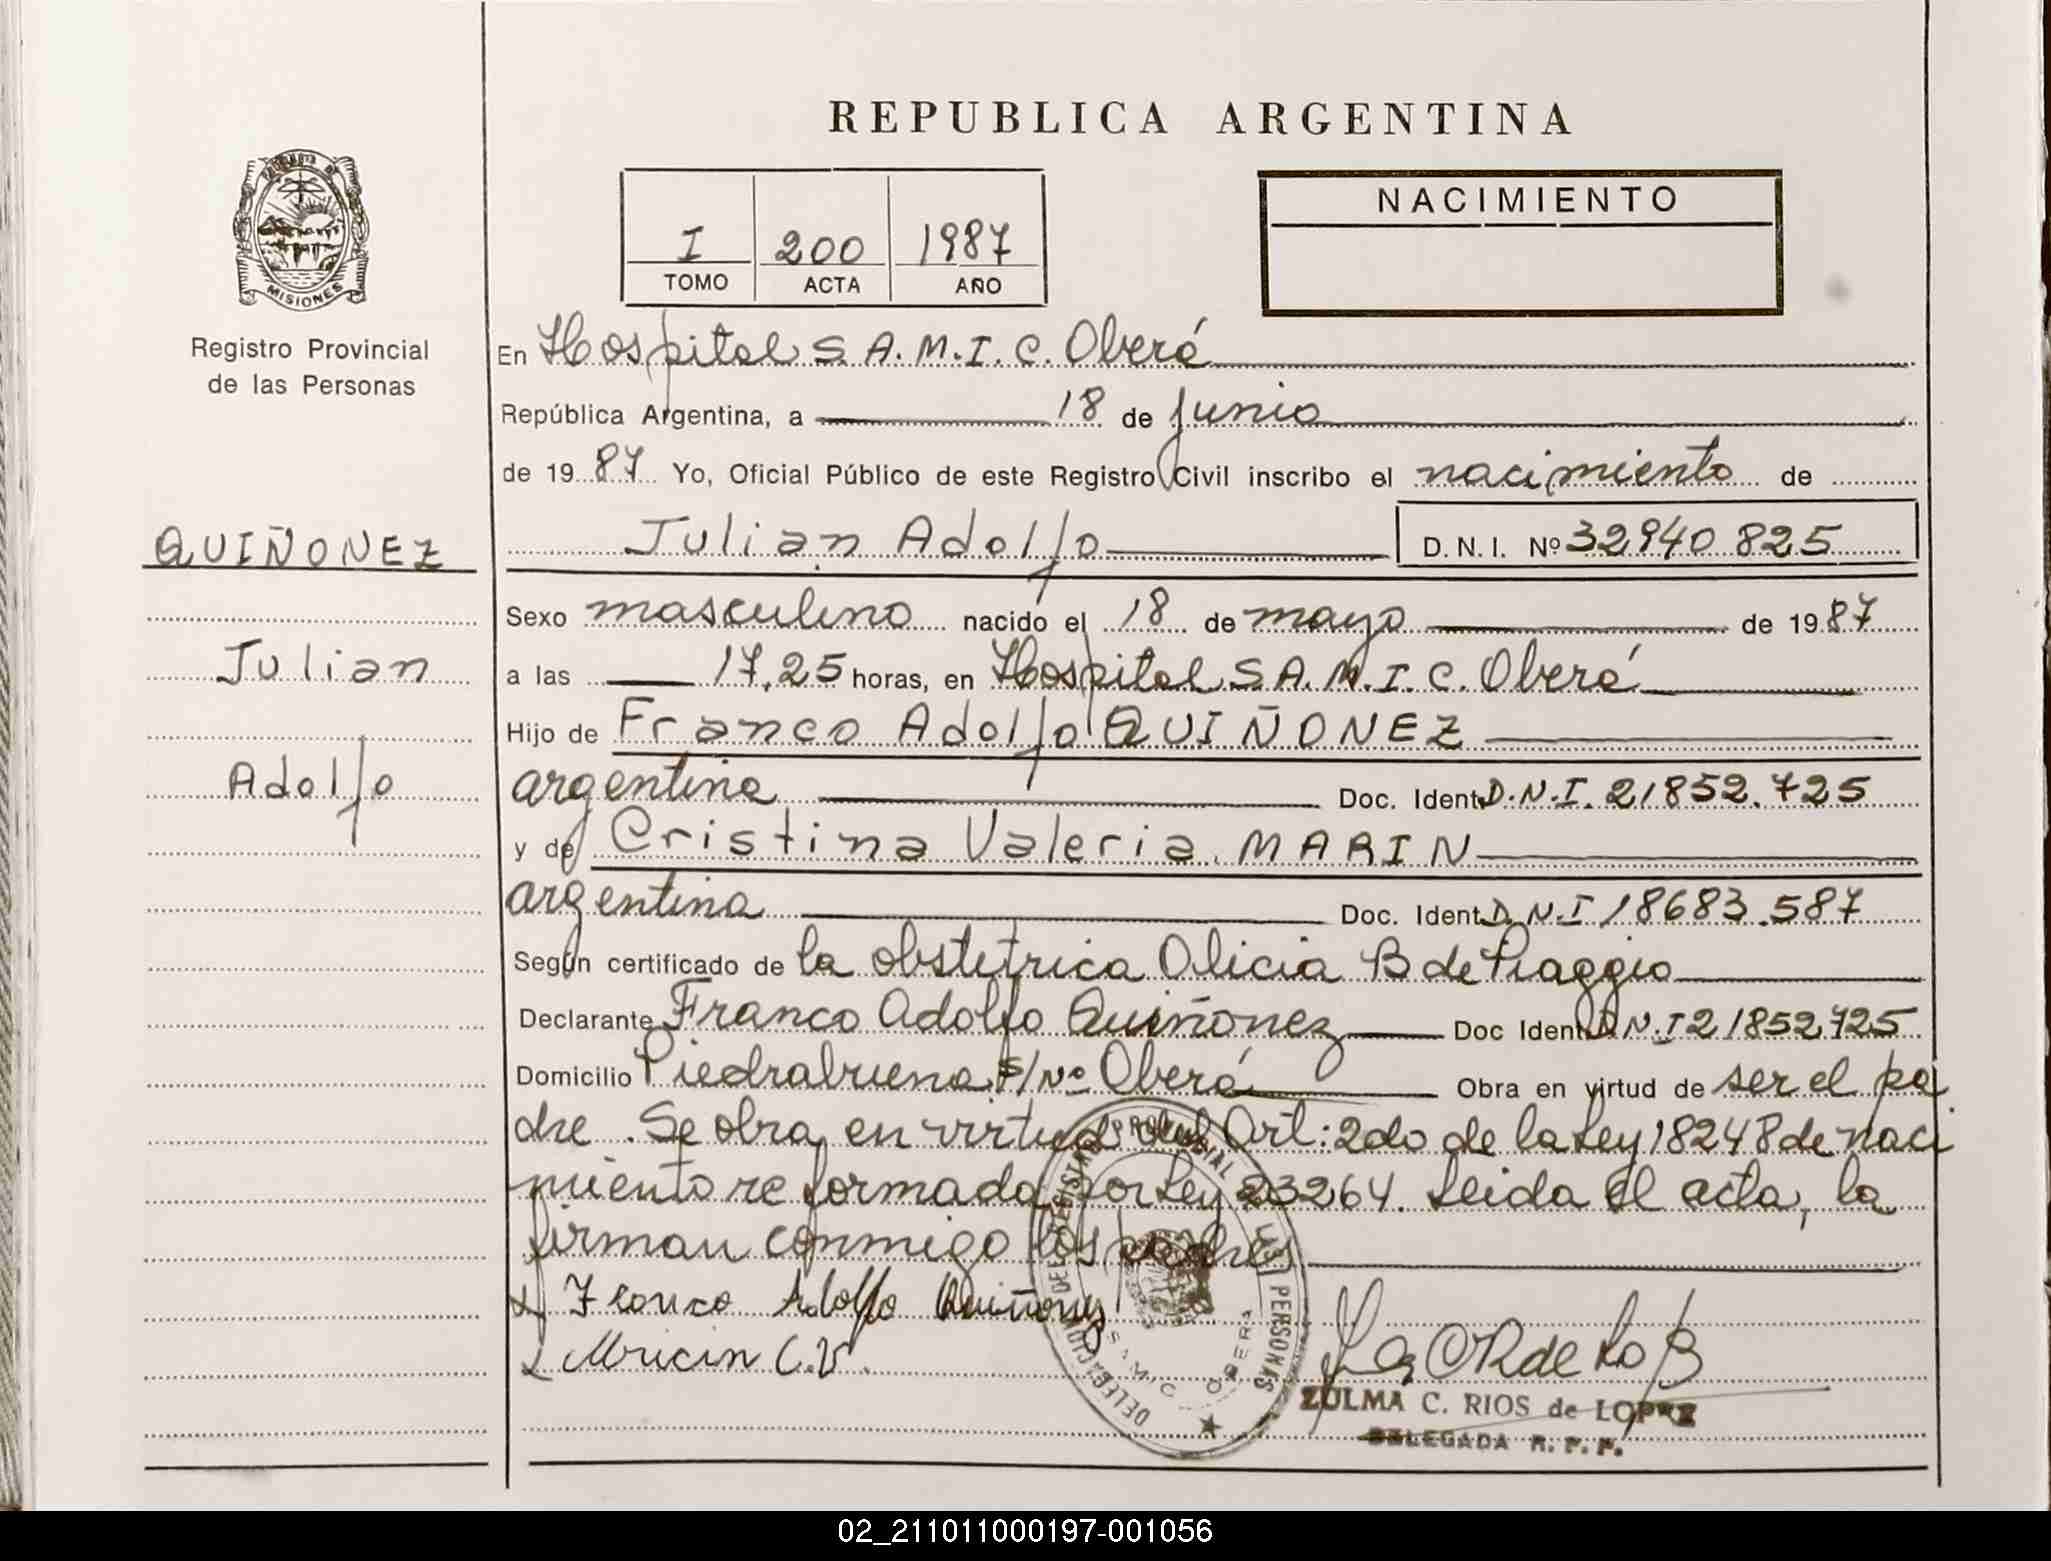 REPUBLICA ARGENTINA
MISIONES
Registro Provincial
de las Personas
I 200 1987
TOMO ACTA AÑO
NACIMIENTO
En Hospital S.A.M.I.C. Oberá
República Argentina, a 18 de junio
de 1987 Yo, Oficial Público de este Registro Civil inscribo el nacimiento de
Julian Adolfo D.N.I. Nº 32940825
QUIÑONEZ
Julian
Adolfo
Sexo masculino nacido el 18 de mayo de 1987
a las 17,25 horas, en Hospital S.A.M.I.C. Oberá
Hijo de Franco Adolfo QUIÑONEZ
argentina Doc. Ident. D.N.I. 21852.725
y de Cristina Valeria MARIN
argentina Doc. Ident. D.N.I 18683.587
Según certificado de la obstetrica Alicia B de Piaggio
Declarante Franco Adolfo Quiñonez Doc Ident. D.N.I 21852725
Domicilio Piedrabuena s/Nº Oberá Obra en virtud de ser el pa
dre. Se obra en virtud del Art: 2do de la Ley 18248 de naci
miento reformada por Ley 23264. Leida el acta, la
firman conmigo los padres
Franco Adolfo Quiñonez
C.V.
DELEGACION DEL REGISTRO PROVINCIAL DE LAS PERSONAS
SAMIC OBERA
ZULMA C. RIOS de LOPEZ
DELEGADA R. P. P.
02_211011000197-001056